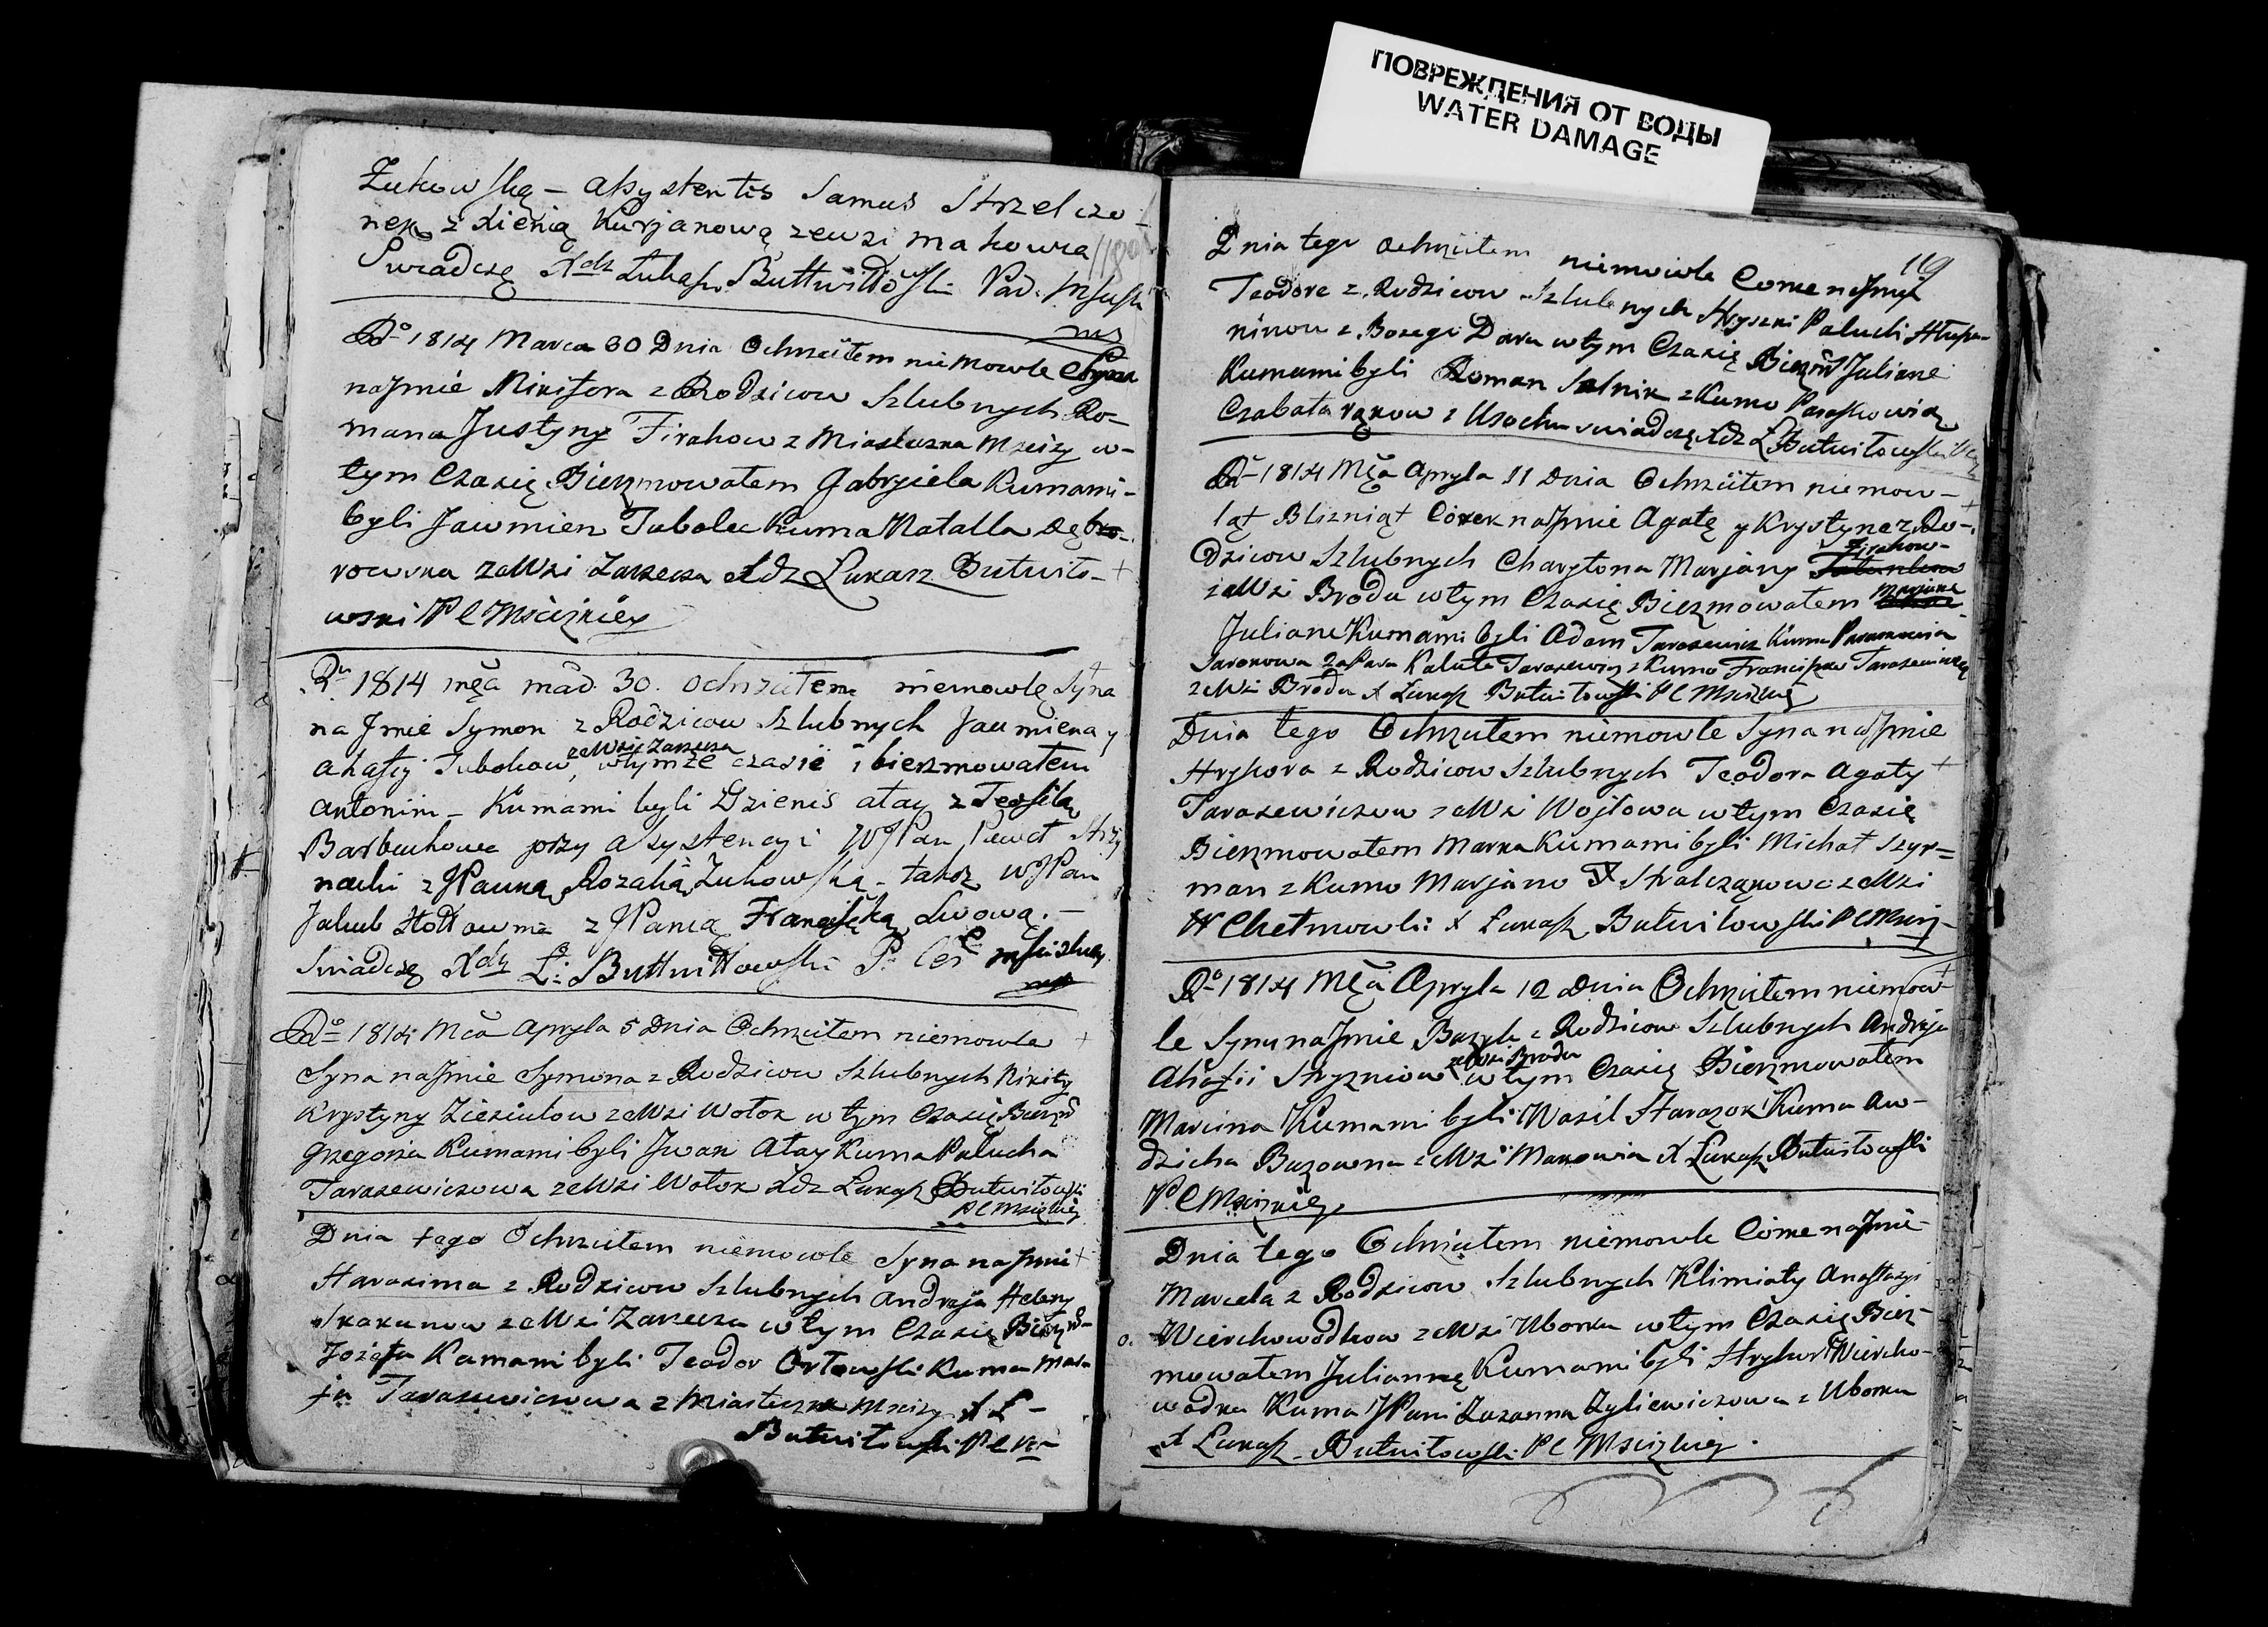 ПОВРЕЖДЕНИЯ ОТ ВОДЫ
WATER DAMAGE
Żukowską – assystentis Samus Strzelczo-
nek z Xienią Kurjanową zewsi makowia
Swiadczę Xdz Łukasz Buttwiłłowski Par.
Ro 1814 Marca 30 Dnia Ochrzciłem niemowle Syna
na Jmie Nikifora z Rodzicow Szlubnych Ro-
mana Justyny Firahow z Miasteczka Mscizy w-
tym Czasię Bierzmowałem Gabryiela Kumami-
byli Jawmien Tubolec Kuma Natalla Dąbro-
rowska zeWsi Zarzecza Xdz Łukasz Butwiło-
wski P C Mscizkiey
Ru 1814 męca 30. ochrzciłem niemowlę Syna
na Jmie Symon z Rodzicow Szlubnych Jaumiena y
ahafij Tubolcow, zeWsi Zarzecza wtymże czasie i bierzmowałem
antonim – Kumami byli Dzienis atay z Teofilą
przy assystencyi WJPan Paweł
z JPanną Rozalią Żukowską – także WJPan
Jakub Hołłownia z JPanią Franciszką Lwową. –
Swiadczę Xdz Ł: Buttwiłłowski P. Ces
Ro 1814 Mca Apryla 5 Dnia Ochrzciłem niemowle
Syna na Jmie Symona z Rodzicow Szlubnych Nikity
Krystyny Zieziulow zeWsi Wołok w tym Czasię Bierzm
Grzegorza Kumami byli Jwan Atay Kuma Pałucha
Tarasewiczowa zeWsi Wołok Xdz Łukasz Butwiłowski
P C Mscizkiey
Dnia tego Ochrzciłem niemowle Syna na Jmi
Harasima z Rodzicow Szlubnych Andreja Heleny
Skakunow zeWsi Zarzecza w tym Czasię Bierzm-
Jozefa Kumami byli Teodor Orłowski Kuma Mar-
ja Tarasewiczowa z Miasteczka Mscizy X Ł –
Butwiłowski P C
119
Dnia tego Ochrzciłem niemowle Corke na Jmie
Teodore z Rodzicow Szlubnych Hryszki Pałuchi
ninow z Bozego Daru w tym Czasię Bierzm Juliane
Kumami byli Roman Salnik z Kumo Paraskowią
z Usochu swiadczę Xdz Ł Butwiłowski
Ro 1814 Męca Apryla 11 Dnia Ochrzciłem niemow-
ląt Blizniąt Corek na Jmie Agatę y Krystyne z Ro-
dzicow Szlubnych Charytona Marjany Zirahow-
zeWsi Brodu w tym Czasię Bierzmowałem Marjane
Juliane Kumami byli Adam Tarasewicz Kuma
2a Para Kaluta Tarasewicz z Kumo Franciszko
zeWsi Brodu X Łukasz Butwiłowski P C Mscizkiey
Dnia tego Ochrzciłem niemowle Syna na Jmie
Hryhora z Rodzicow Szlubnych Teodora Agaty
Tarasewiczow zeWsi Wojtowa w tym Czasię
Bierzmowałem Marka Kumami byli Michał Szyr=
man z Kumo Marjano Stralczonkowo zeWsi
Chełmowki X Łukasz Butwiłowski P C Mscizk-
Ro 1814 Męca Apryla 12 Dnia Ochrzciłem niemow-
le Syna na Jmie Bazyla z Rodzicow Szlubnych Andreja
Ahafii Hryzniow zeWsi Brodu w tym Czasię Bierzmowałem
Marcina Kumami byli Wasil Harazok Kuma Aw-
dzicha Buzowna zeWsi Makowia X Łukasz Butwiłowski
P C Mscizkiey
Dnia tego Ochrzciłem niemowle Corke na Jmie
Marcela z Rodzicow Szlubnych Klimiaty Anastazyi
Wierchowodkow zeWsi Uborku w tym Czasię Bierz-
mowałem Juliannę Kumami byli Hryhor Wiercho-
wodka Kuma JPani Zuzanna Zyliewiczowa z Uborku
X Łukasz Butwiłowski P C Mscizkiey.